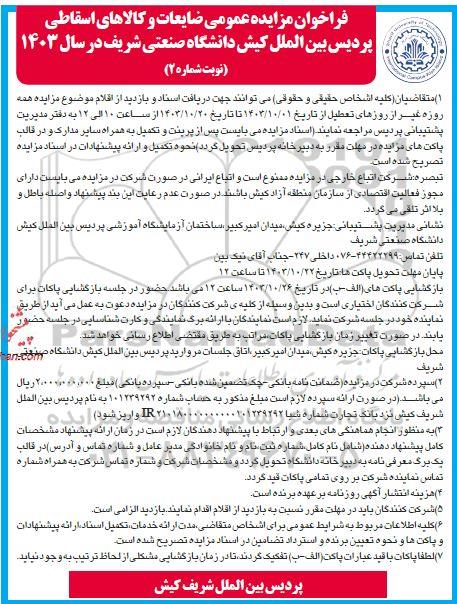 فراخوان مزایده عمومی ضایعات و کالاهای اسقاطی
پردیس بین الملل کیش دانشگاه صنعتی شریف در سال ۱۴۰۳
(نوبت شماره ۲)
۱)متقاضیان(کلیه اشخاص حقیقی و حقوقی) می توانند جهت دریافت اسناد و بازدید از اقلام موضوع مزایده همه
روزه غیر از روزهای تعطیل از تاریخ ۱۴۰۳/۱۰/۰۱ تا تاریخ ۱۴۰۳/۱۰/۲۰ از ساعت ۱۰ الی ۱۲ به دفتر مدیریت
پشتیبانی پردیس مراجعه نمایند.(اسناد مزایده می بایست پس از پرینت و تکمیل به همراه سایر مدارک و در قالب
پاکت های مزایده در مهلت مقرر به دبیرخانه پردیس تحویل گردد)نحوه تکمیل و ارائه پیشنهادات در اسناد مزایده
تصریح شده است.
تبصره:شرکت اتباع خارجی در مزایده ممنوع است و اتباع ایرانی در صورت شرکت در مزایده می بایست دارای
مجوز فعالیت اقتصادی از سازمان منطقه آزاد کیش باشند.در صورت عدم رعایت این بند پیشنهاد واصله باطل و
بلا اثر تلقی می گردد.
نشانی مدیریت پشتیبانی:جزیره کیش،میدان امیرکبیر،ساختمان آزمایشگاه آموزشی پردیس بین الملل کیش
دانشگاه صنعتی شریف
تلفن تماس:۴۴۴۲۲۲۹۹-۰۷۶ داخلی ۲۴۷-جناب آقای نیک بین
پایان مهلت تحویل پاکت ها:تاریخ ۱۴۰۳/۱۰/۲۲ تا ساعت ۱۲
بازگشایی پاکت های(الف-ب)در تاریخ ۱۴۰۳/۱۰/۲۶ ساعت ۱۲ می باشد.حضور در جلسه بازگشایی پاکات برای
شرکت کنندگان اختیاری است و بدین وسیله از کلیه ی شرکت کنندگان در مزایده دعوت به عمل می آید از طریق
نماینده خود در جلسه شرکت نماید. لازم است نمایندگان با ارائه برگ نمایندگی و کارت شناسایی در جلسه حضور
یابند. در صورت تغییر زمان بازگشایی پاکات،مراتب به طریق مقتضی اطلاع رسانی خواهد شد.
محل بازگشایی پاکات:جزیره کیش،میدان امیرکبیر،اتاق جلسات مروارید پردیس بین الملل کیش دانشگاه صنعتی
شریف
۲)سپرده شرکت در مزایده(ضمانت نامه بانکی-چک تضمین شده بانکی-سپرده بانکی) مبلغ ۲۰۰۰،۰۰۰،۰۰۰ ریال
می باشد.(در صورت ارائه سپرده لازم است مبلغ مذکور به حساب شماره ۱۰۱۲۳۹۲۹۲ به نام پردیس بین الملل
شریف کیش نزد بانک تجارت شماره شبا IR۲۱۰۱۸۰۰۰۰۰۰۰۰۰۰۰۱۰۱۲۳۹۲۹۲ واریز شود)
۳)به منظور انجام هماهنگی های بعدی و ارتباط با پیشنهاد دهندگان لازم است در زمان ارائه پیشنهاد مشخصات
کامل پیشنهاد دهنده(شامل نام کامل،شماره ثبت،نام و نام خانوادگی مدیر عامل و شماره تماس و آدرس)در قالب
یک برگ معرفی نامه به دبیرخانه دانشگاه تحویل گردد و مشخصات شرکت و شماره تماس شرکت به همراه شماره
تماس نماینده شرکت بر روی تمامی پاکات قید گردد.
۴)هزینه انتشار آگهی روزنامه بر عهده برنده است.
۵)شرکت کنندگان باید در مهلت مقرر نسبت به بازدید از اقلام اقدام نمایند.بازدید الزامی است.
۶)کلیه اطلاعات مربوط به شرایط عمومی برای اشخاص متقاضی،مدت ارائه خدمات،تکمیل اسناد،ارائه پیشنهادات
و پاکت ها و نحوه تعیین برنده و استرداد تضامین در اسناد مزایده تصریح شده است.
۷)لطفا پاکات با قید عبارات پاکت(الف-ب) تفکیک گردند،تا در زمان بازگشایی مشکلی از لحاظ ترتیب به وجود نیاید.
پردیس بین الملل شریف کیش